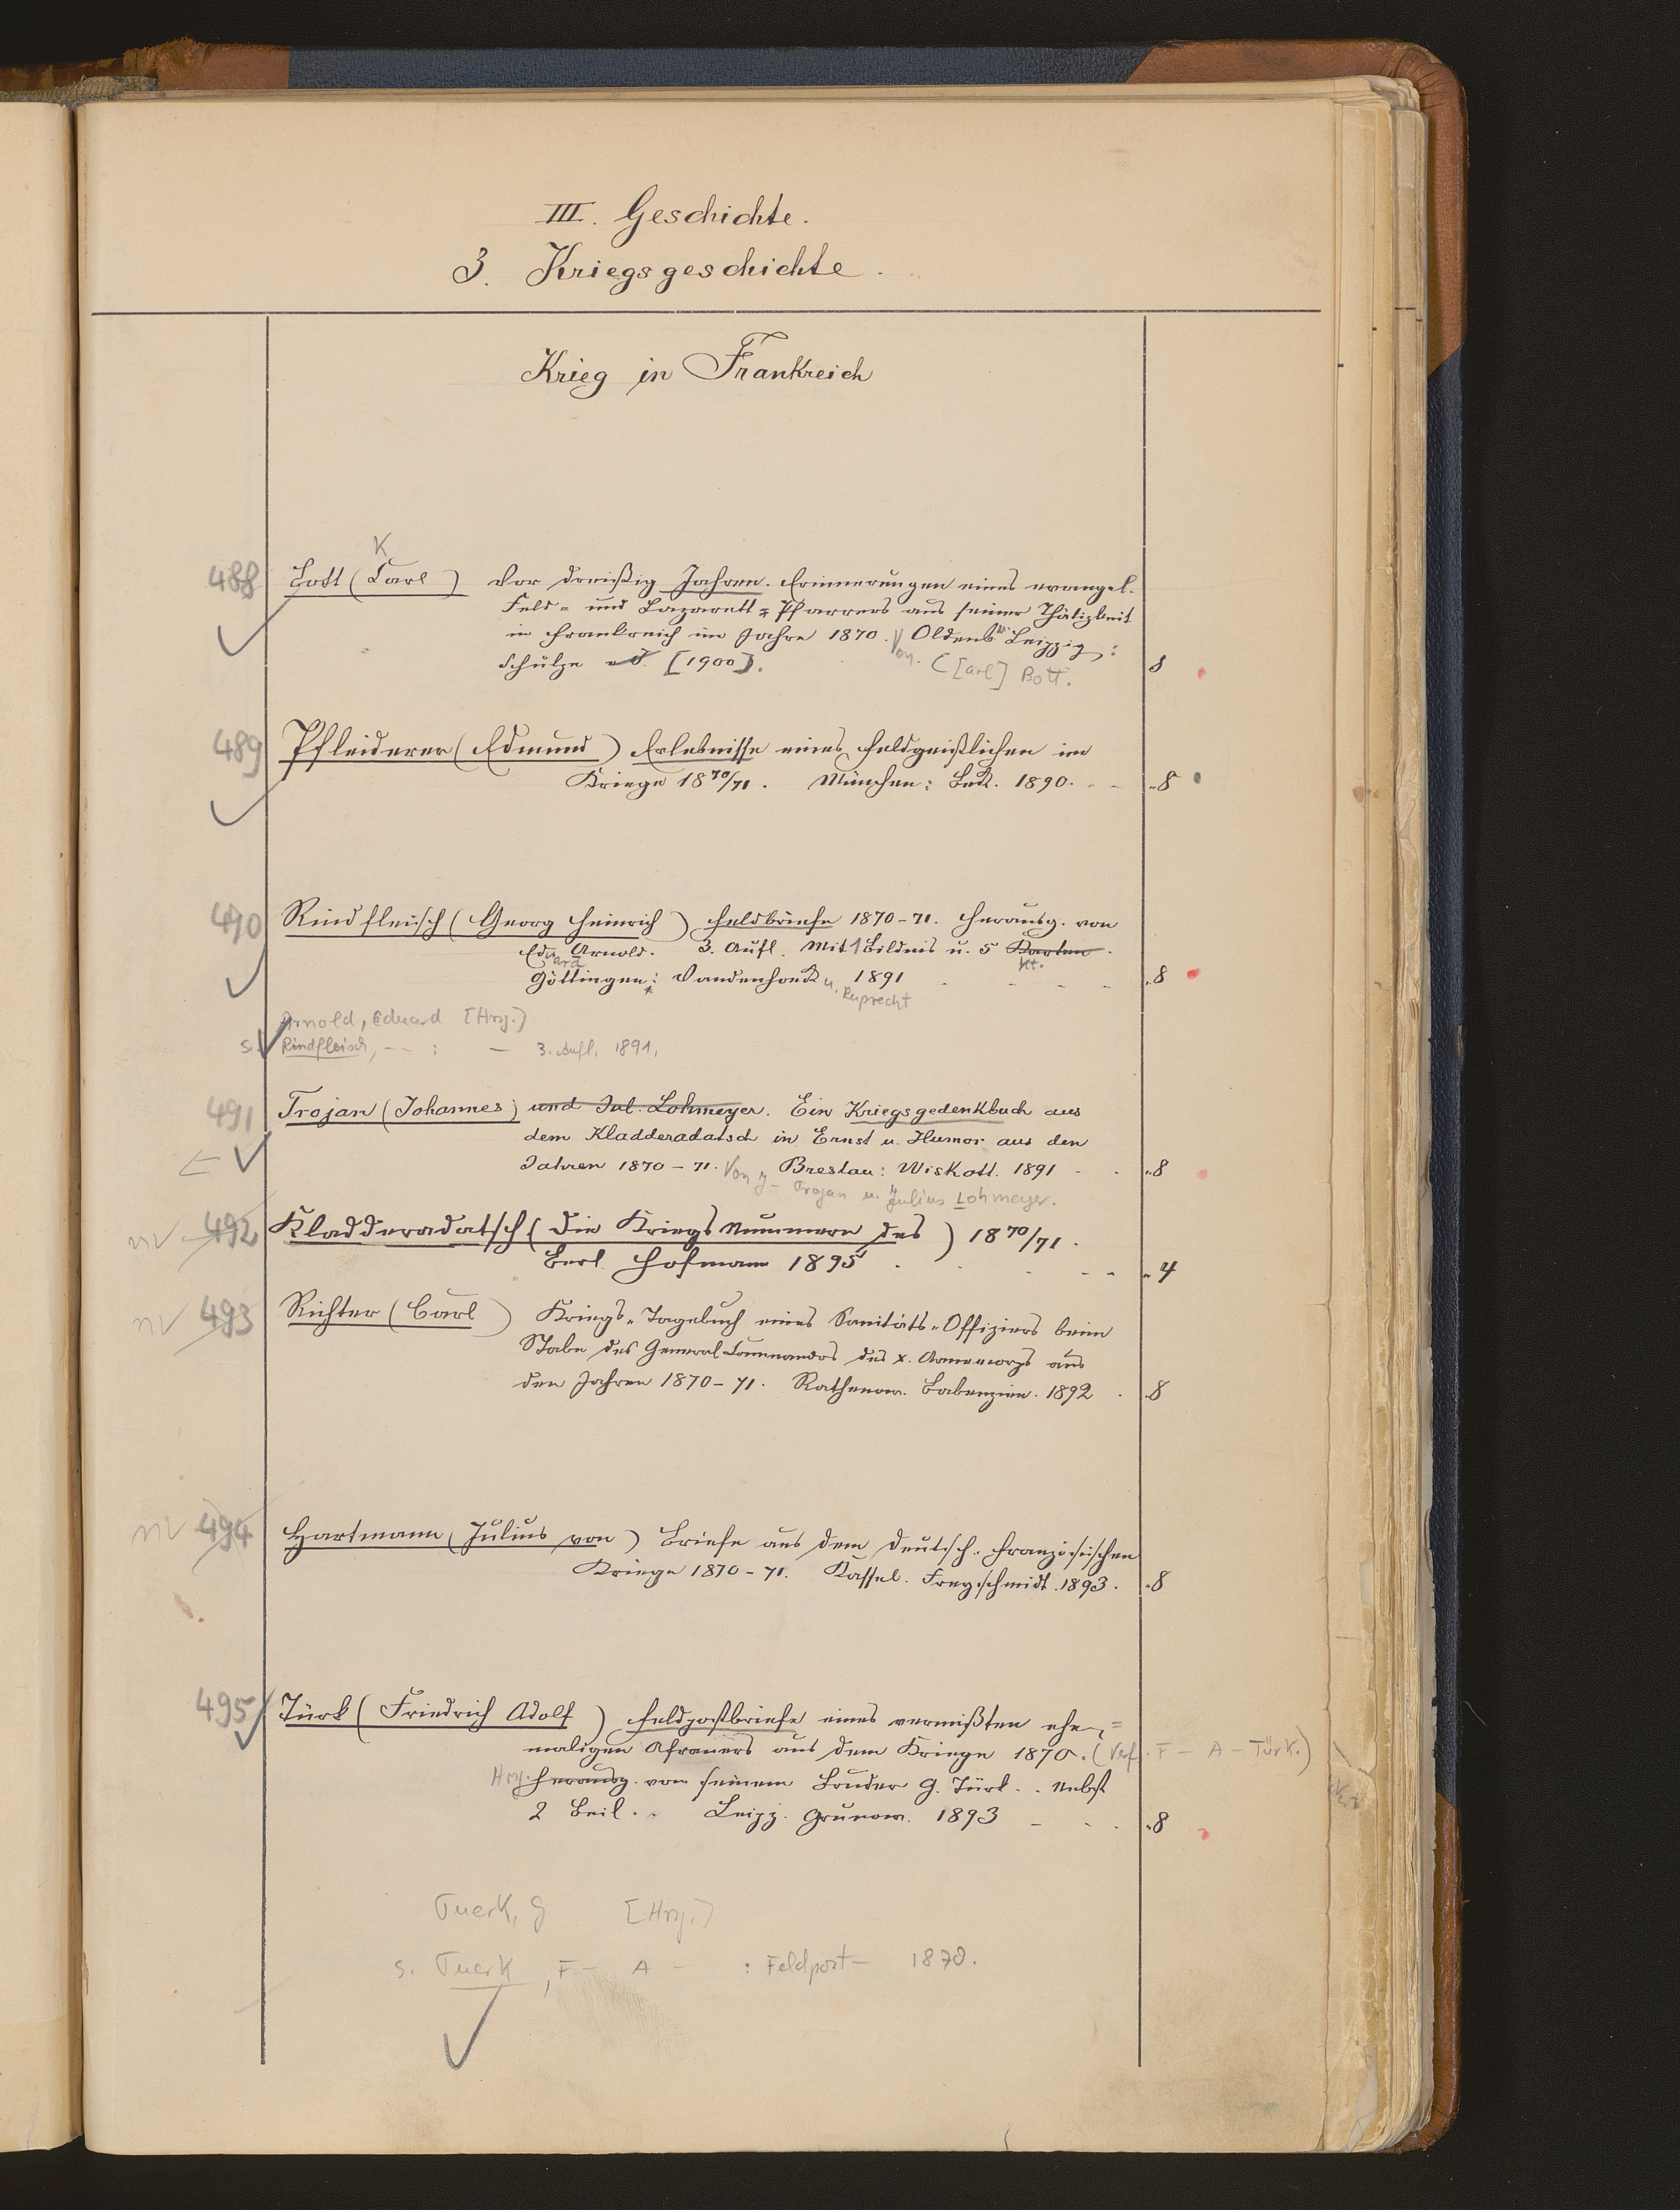 III. Geschichte.
3. Kriegsgeschichte.
Krieg in Frankreich
K
488 Bott (Carl) Vor dreißig Jahren. Erinnerungen eines evangel.
Feld- und Lazarett-Pfarrers aus seiner Thätigkeit
in Frankreich im Jahre 1870. Oldenb. Leipzig:
Schulze [1900]. Von C[arl] Bott. 8
489 Pfleiderer (Edmund) Erlebnisse eines Feldgeistlichen im
Kriege 18 70/71. München: Beck. 1890. 8
490 Rindfleisch (Georg Heinrich) Feldbriefe 1870-71. Herausg. von
Eduard Arnold. 3. Aufl. Mit 1 Bildnis u. 5 Karten. Kt.
Göttingen: Vandenhoeck u. Ruprecht 1891 8
Arnold, Eduard [Hrsg.]
s. Rindfleisch, -- : — 3. Aufl. 1891.
491 Trojan (Johannes) und Jul. Lohmeyer. Ein Kriegsgedenkbuch aus
dem Kladderadatsch in Ernst u. Humor aus den
Jahren 1870-71. Breslau: Wiskott. 1891 8
Von J- Trojan u. Julius Lohmeyer.
nv 492 Kladderadatsch (Die Kriegsnummern des) 18 70/71.
Berl. Hofmann 1895 4
nv 493 Richter (Carl) Kriegs-Tagebuch eines Sanitäts-Offiziers beim
Stabe des General-Commandos des X. Armeecorps aus
den Jahren 1870-71. Rathenow. Babenzien. 1892 8
nv 494 Hartmann (Julius von) Briefe aus dem Deutsch-französischen
Kriege 1870-71. Kassel. Freyschmidt. 1893. 8
495 Türk (Friedrich Adolf) Feldpostbriefe eines vermißten ehe-
maligen Afraners aus dem Kriege 1870. (Verf. F- A- Türk.)
Hrsg. Herausg. von seinem Bruder G. Türk. Nebst
2 Beil. Leipz. Grunow. 1893 8
Tuerk, G [Hrsg.]
s. Tuerk, F- A- : Feldpost- 1870.